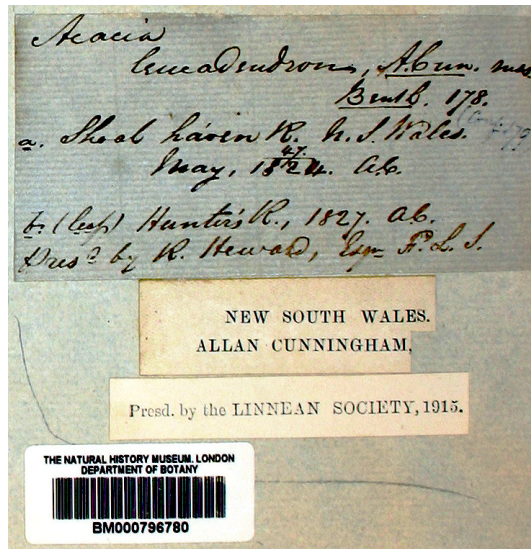 Acacia
leucadendron, A.Cun. mss
Benth. 178.
a. Shoal haven R. N. S. Wales.
May, 1824. Ab.
47
b. (left) Hunter's R., 1827. Ab.
Pres.d by R. Heward, Esqr. F. L. S.
NEW SOUTH WALES.
ALLAN CUNNINGHAM,
Presd. by the LINNEAN SOCIETY, 1915.
THE NATURAL HISTORY MUSEUM. LONDON
DEPARTMENT OF BOTANY
BM000796780